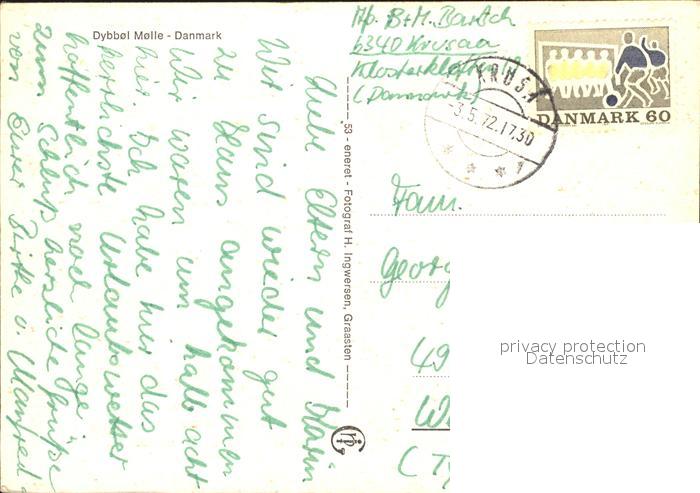 Dybbøl Mølle - Danmark
Liebe Eltern und Karin
Wir sind wieder gut
zu Haus angekommen
Wir waren um halb acht
hier. Ich habe hier das
herrlichste Urlaubswetter
hoffentlich noch lange
zum Schluß herzliche Grüße
von Eurer Birthe u. Manfred
53 - eneret - Fotograf H. Ingwersen, Graasten
B+M. Bartsch
6340 Krusaa
(Danmark)
KRUSÅ
3.5.72.17.30
DANMARK 60
Fam.
Georg
49
privacy protection
Datenschutz